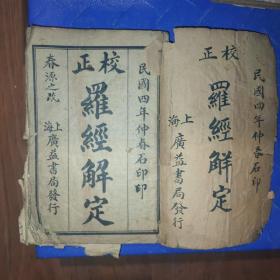 校正
民國四年仲春石印
羅經解定
上海廣益書局發行
校正
民國四年仲春石印印
羅經解定
上海廣益書局發行